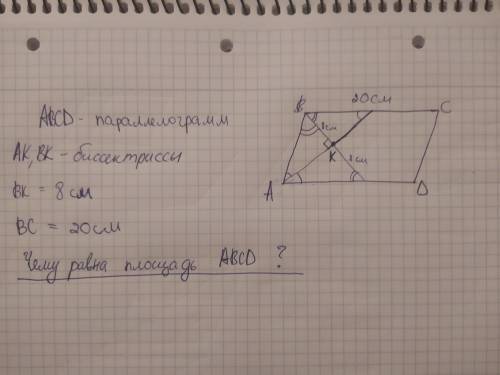 ABCD - параллелограмм
AK, BK - биссектрассы
BK = 8 см
BC = 20 см
Чему равна площадь ABCD ?
20 см
B
C
8 см
K
8 см
A
D